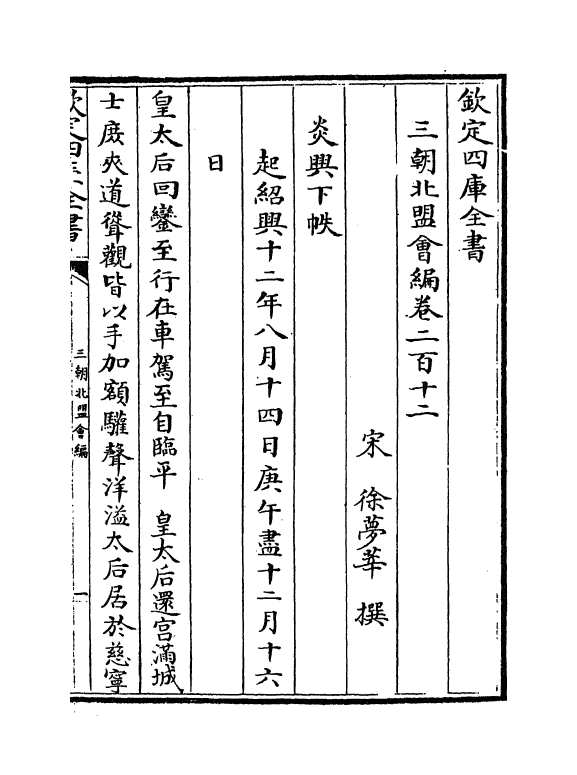 欽定四庫全書
三朝北盟會編卷二百十二
宋 徐夢莘 撰
炎興下帙
起紹興十二年八月十四日庚午盡十二月十六
日
皇太后回鑾至行在車駕至自臨平 皇太后還宮滿城
士庶夾道聳觀皆以手加額驩聲洋溢太后居於慈寧
欽定四庫全書
三朝北盟會編
一